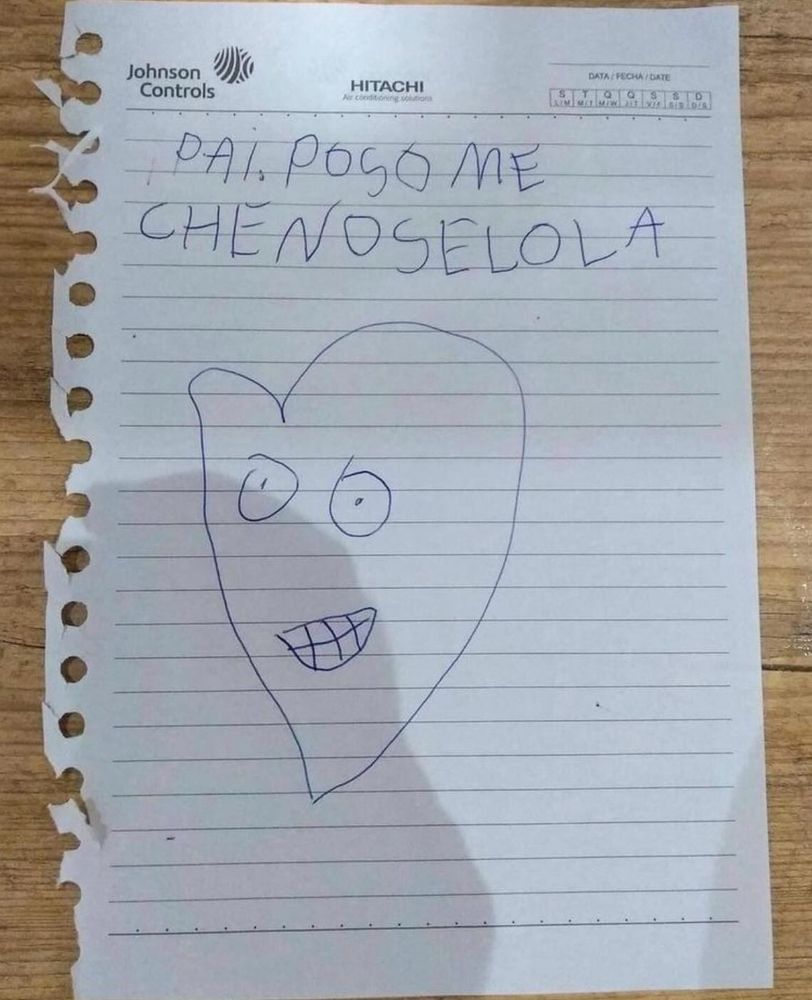 Johnson
Controls
HITACHI
Air conditioning solutions
DATA / FECHA / DATE
S T Q Q S S D
L/M M/T M/W J/T V/F S/S D/S
PAI. POSO ME
CHENOSELOLA